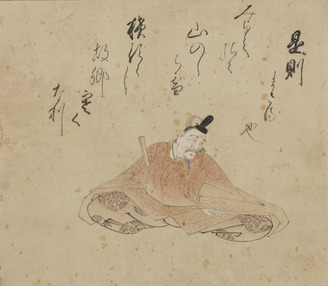 是則
まさる也
みよし
野の
山の
しら雪
積るらし
故郷
寒く
成利